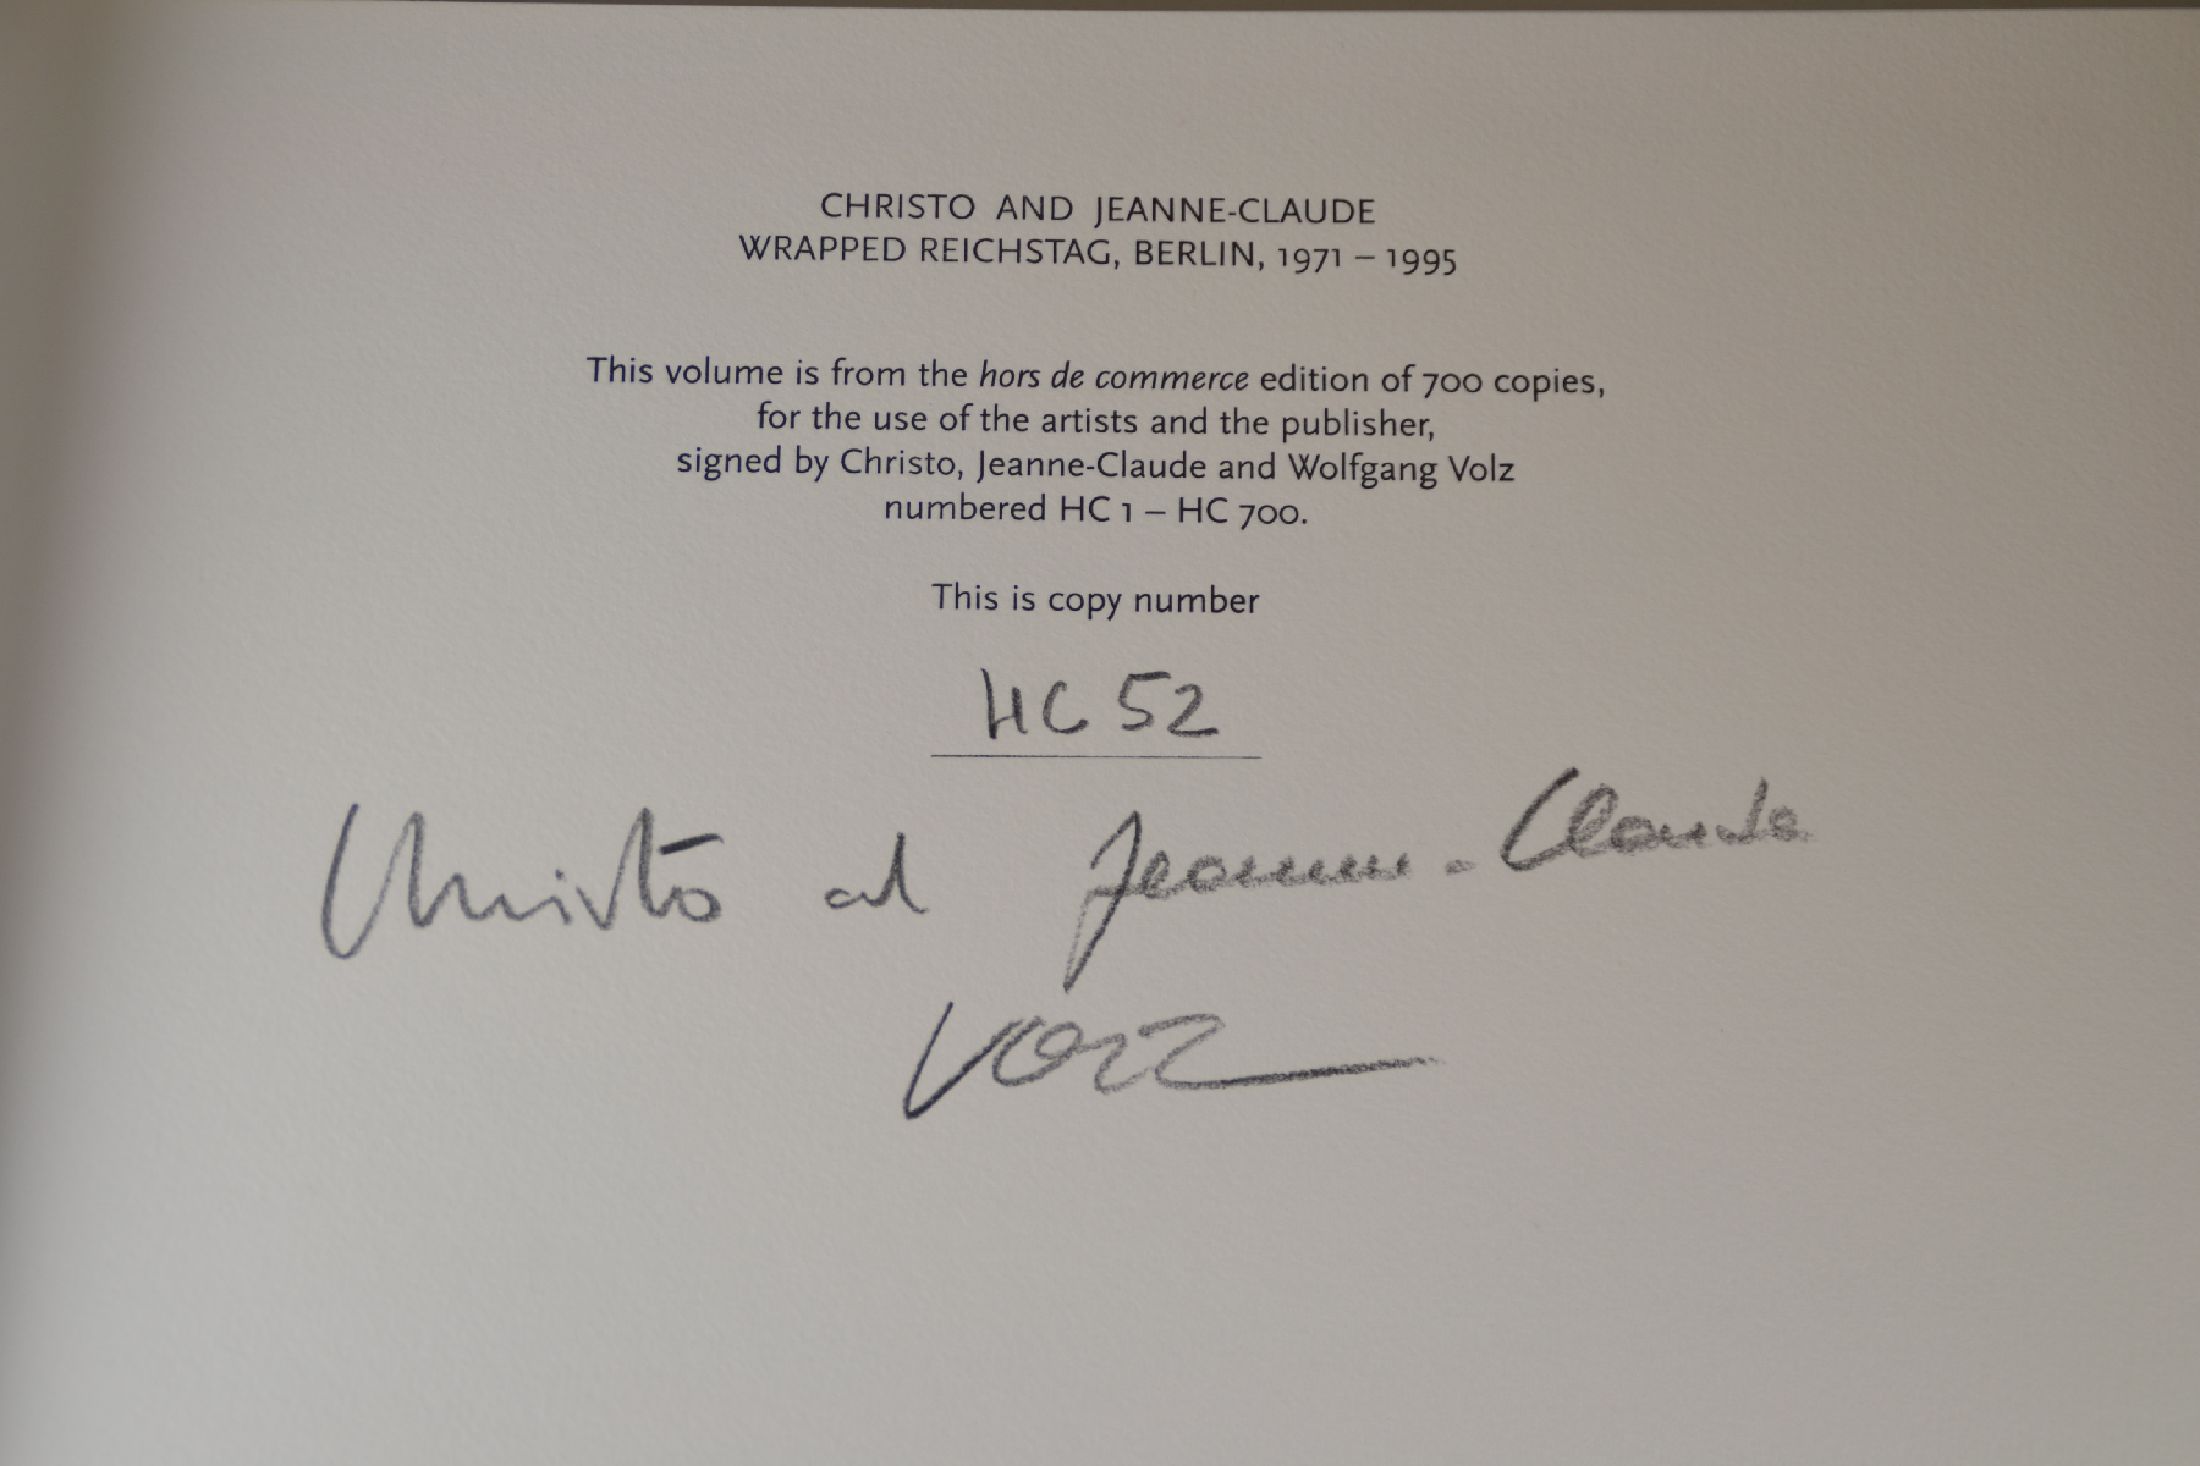 CHRISTO AND JEANNE-CLAUDE
WRAPPED REICHSTAG, BERLIN, 1971 – 1995
This volume is from the hors de commerce edition of 700 copies,
for the use of the artists and the publisher,
signed by Christo, Jeanne-Claude and Wolfgang Volz
numbered HC 1 – HC 700.
This is copy number
HC 52
Christo and Jeanne-Claude
Volz